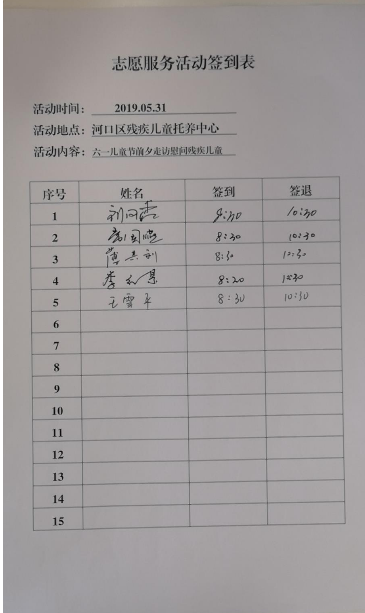 志愿服务活动签到表
活动时间: 2019.05.31
活动地点: 河口区残疾儿童托养中心
活动内容: 六一儿童节前夕走访慰问残疾儿童
序号 姓名 签到 签退
1 10:30
2 8:30 10:30
3 8:30 10:30
4 李 8:20 10:30
5 王雪平 8:30 10:30
6
7
8
9
10
11
12
13
14
15